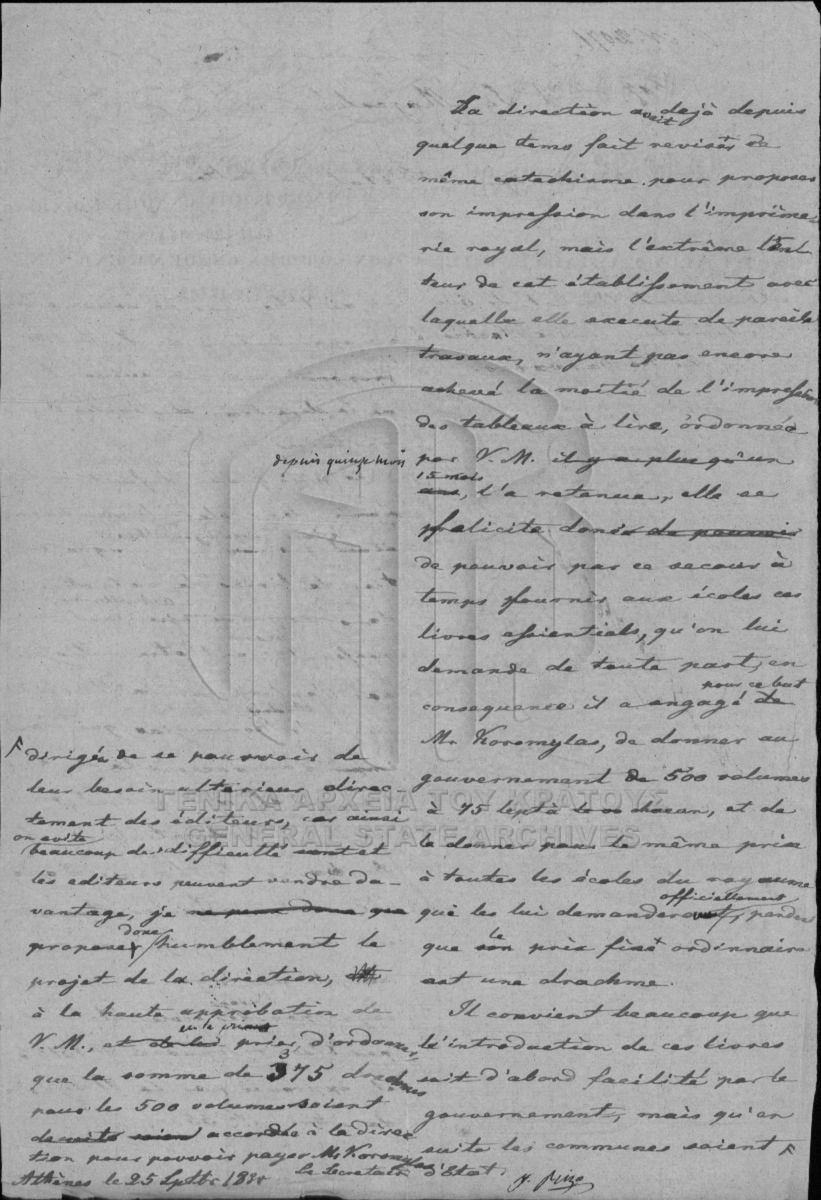 La direction avoit dejà depuis
quelque tems fait revisés de
même catechisme pour proposer
son impression dans l'imprime-
rie royal, mais l'extrême len-
teur de cet établissement avec
laquelle elle execute de pareils
travaux, n'ayant pas encore
achevé la moitié de l'impression
des tableaux à lire, ordonnée
par V. M. il y a plus qu'un
depuis quinze mois
15 mois
ans, l'a retenue, elle se
felicite donc de pouvoir
de pouvoir par ce secours à
temps fournir aux écoles ces
livres essientiels, qu'on lui
demande de toute part, en
pour ce but
consequence il a engagé de
Mr Koromylas, de donner au
gouvernement de 500 volumes
à 75 lepta le chacun, et de
le donner pour le même prix
à toutes les écoles du royaume
officiellement
qui les lui demanderont, pendant
que le prix fixé ordinnaire
est une drachme.
Il convient beaucoup que
l'introduction de ces livres
soit d'abord facilité par le
gouvernement, mais qu'en
suite les communes soient
dirigés de se pourvoir de
leur besoin ulterieur direc-
tement des éditeurs, car ainsi
on evite
beaucoup de difficulté sont et
les editeurs peuvent vendre da-
vantage, je ne peux donc que
donc
propose humblement le
projet de la direction,
à la haute approbation de
en la priant
V. M., et de les prier, d'ordonner,
que la somme de 375 drachmes
pour les 500 volumes soient
accordée à la direc-
tion pour pouvoir payer Mr Koromylas
Athènes le 25 Septbr
Le Secretair d'Etat
J. Rizo
ΓΕΝΙΚΑ ΑΡΧΕΙΑ ΤΟΥ ΚΡΑΤΟΥΣ
GENERAL STATE ARCHIVES